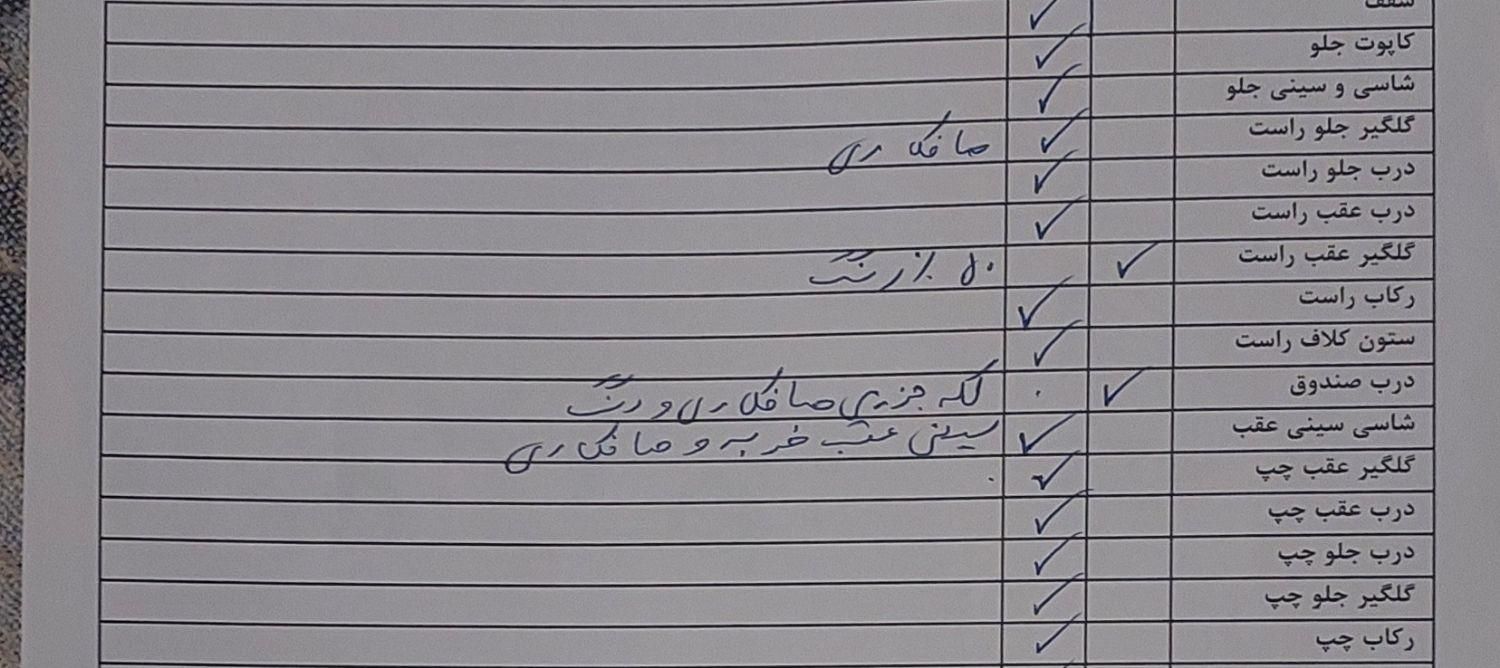 سقف ✓
کاپوت جلو ✓
شاسی و سینی جلو ✓
گلگیر جلو راست ✓ صافکاری
درب جلو راست ✓
درب عقب راست ✓
گلگیر عقب راست ✓ ۵۰٪ رنگ
رکاب راست ✓
ستون کلاف راست ✓
درب صندوق ✓ لکه جزری صافکاری و رنگ
شاسی سینی عقب ✓ سینی عقب ضربه و صافکاری
گلگیر عقب چپ ✓
درب عقب چپ ✓
درب جلو چپ ✓
گلگیر جلو چپ ✓
رکاب چپ ✓